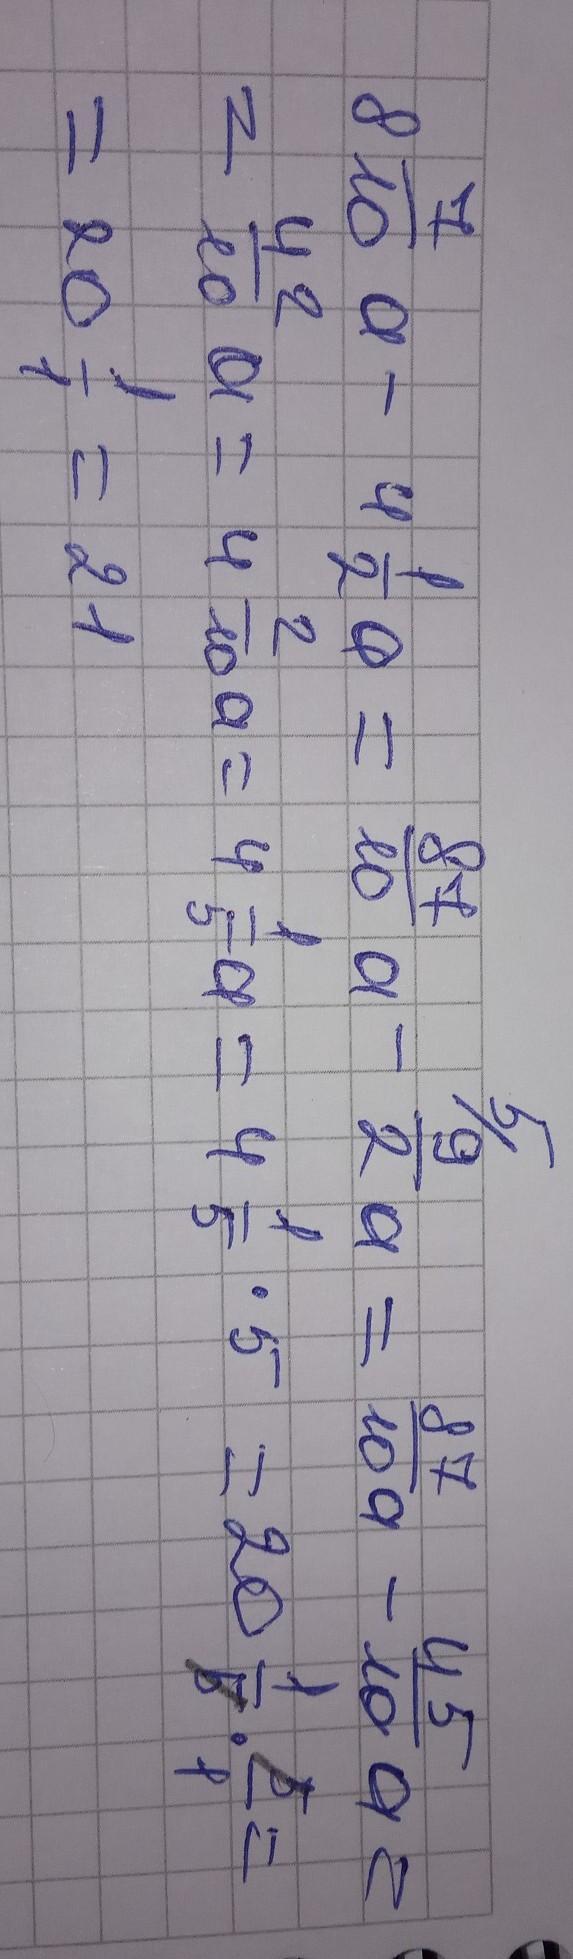 8 7/10 a - 4 1/2 a = 87/10 a - 9/2 a = 87/10 a - 45/10 a =
= 42/10 a = 4 2/10 a = 4 1/5 a = 4 1/5 · 5 = 20 1/5 · 5/1 =
= 20 1/1 = 21